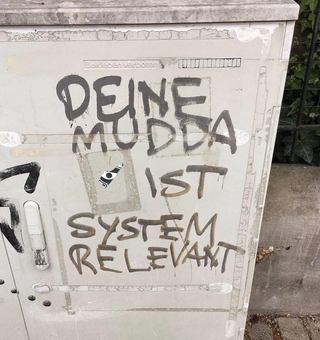 DEINE
MUDDA
IST
SYSTEM
RELEVANT